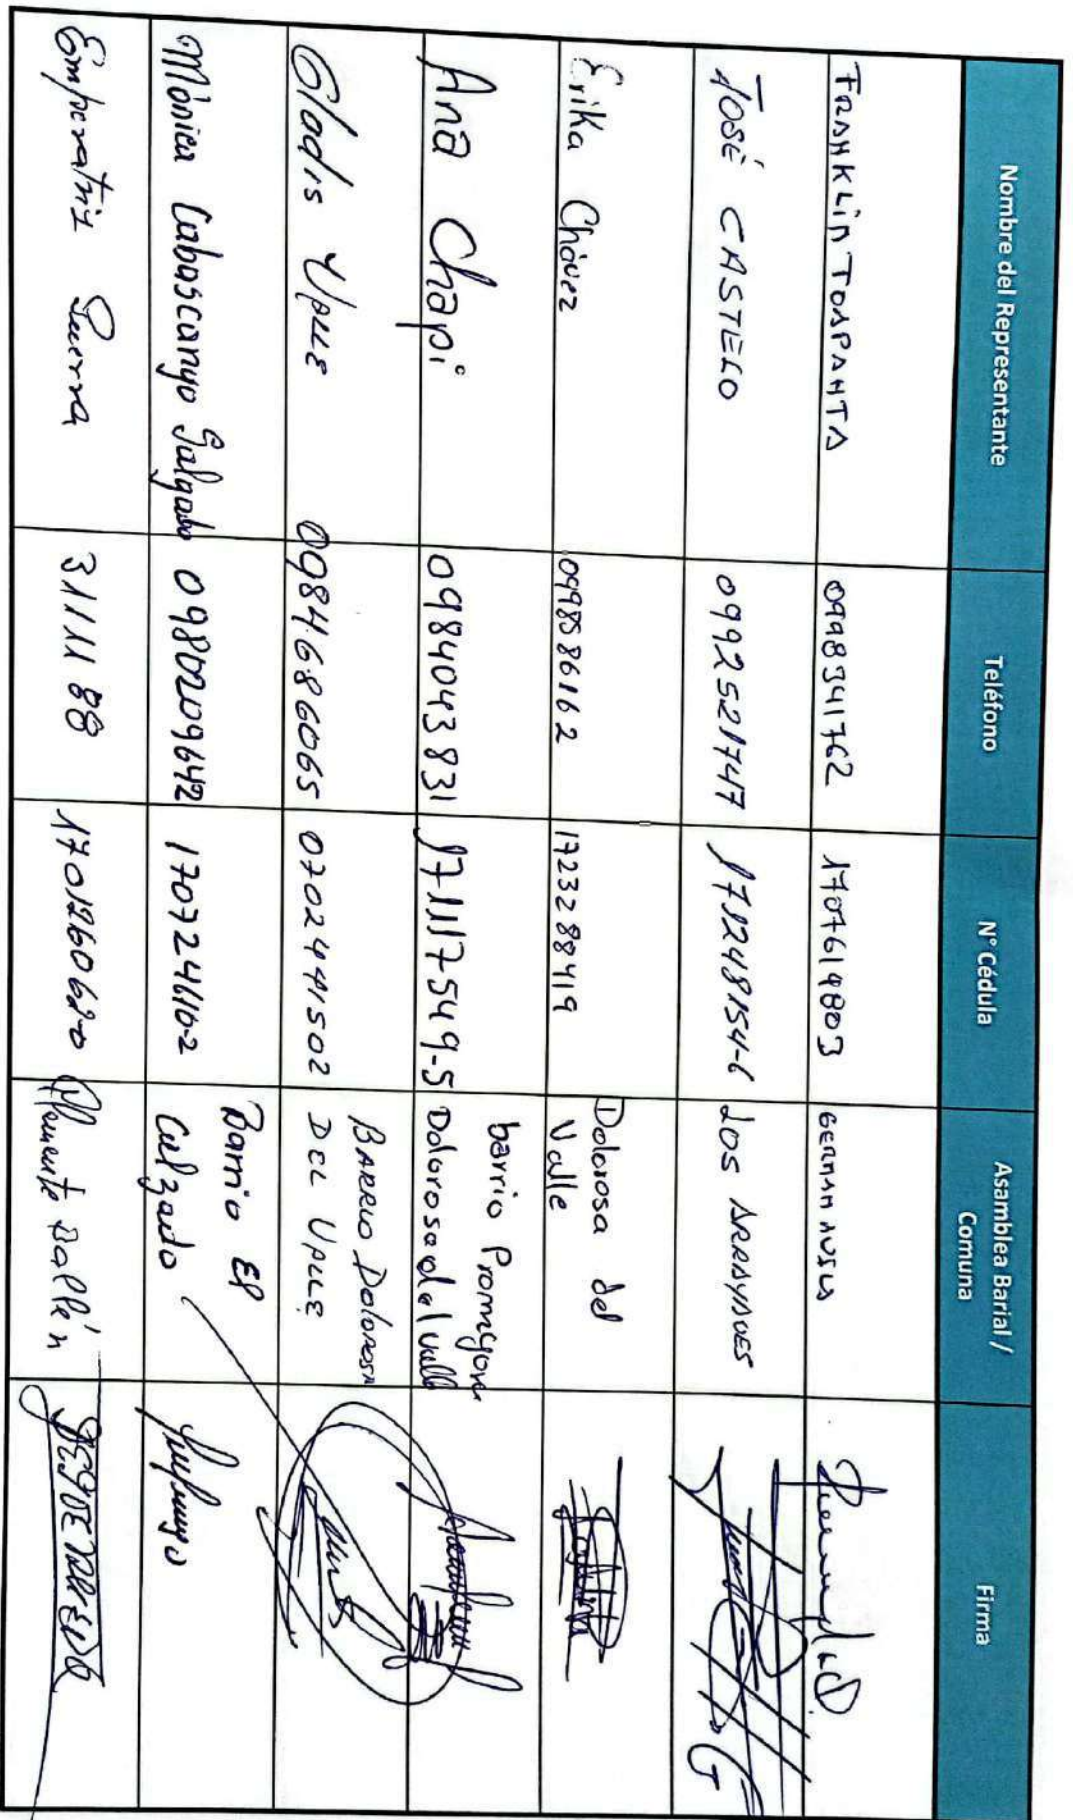 Nombre del Representante Teléfono N° Cédula Asamblea Barial / Comuna Firma
FRANKLIN TOAPANTA 0998341762 1707614803
JOSÉ CASTELO 0992521747 171248154-6 LOS ARRAYANES
Erika Chávez 0998586162 1723288419 Dolorosa del
Valle
Ana Chapi 0984043831 171117549-5 barrio
Dolorosa del Valle
Gladis Valle 0984686065 0702441502 BARRIO Dolorosa
DEL VALLE
Mónica Cabascango Salgado 0980209642 170724616-2 Barrio El
Calzado
Emperatriz Guerra 3111188 Clemente Ballén